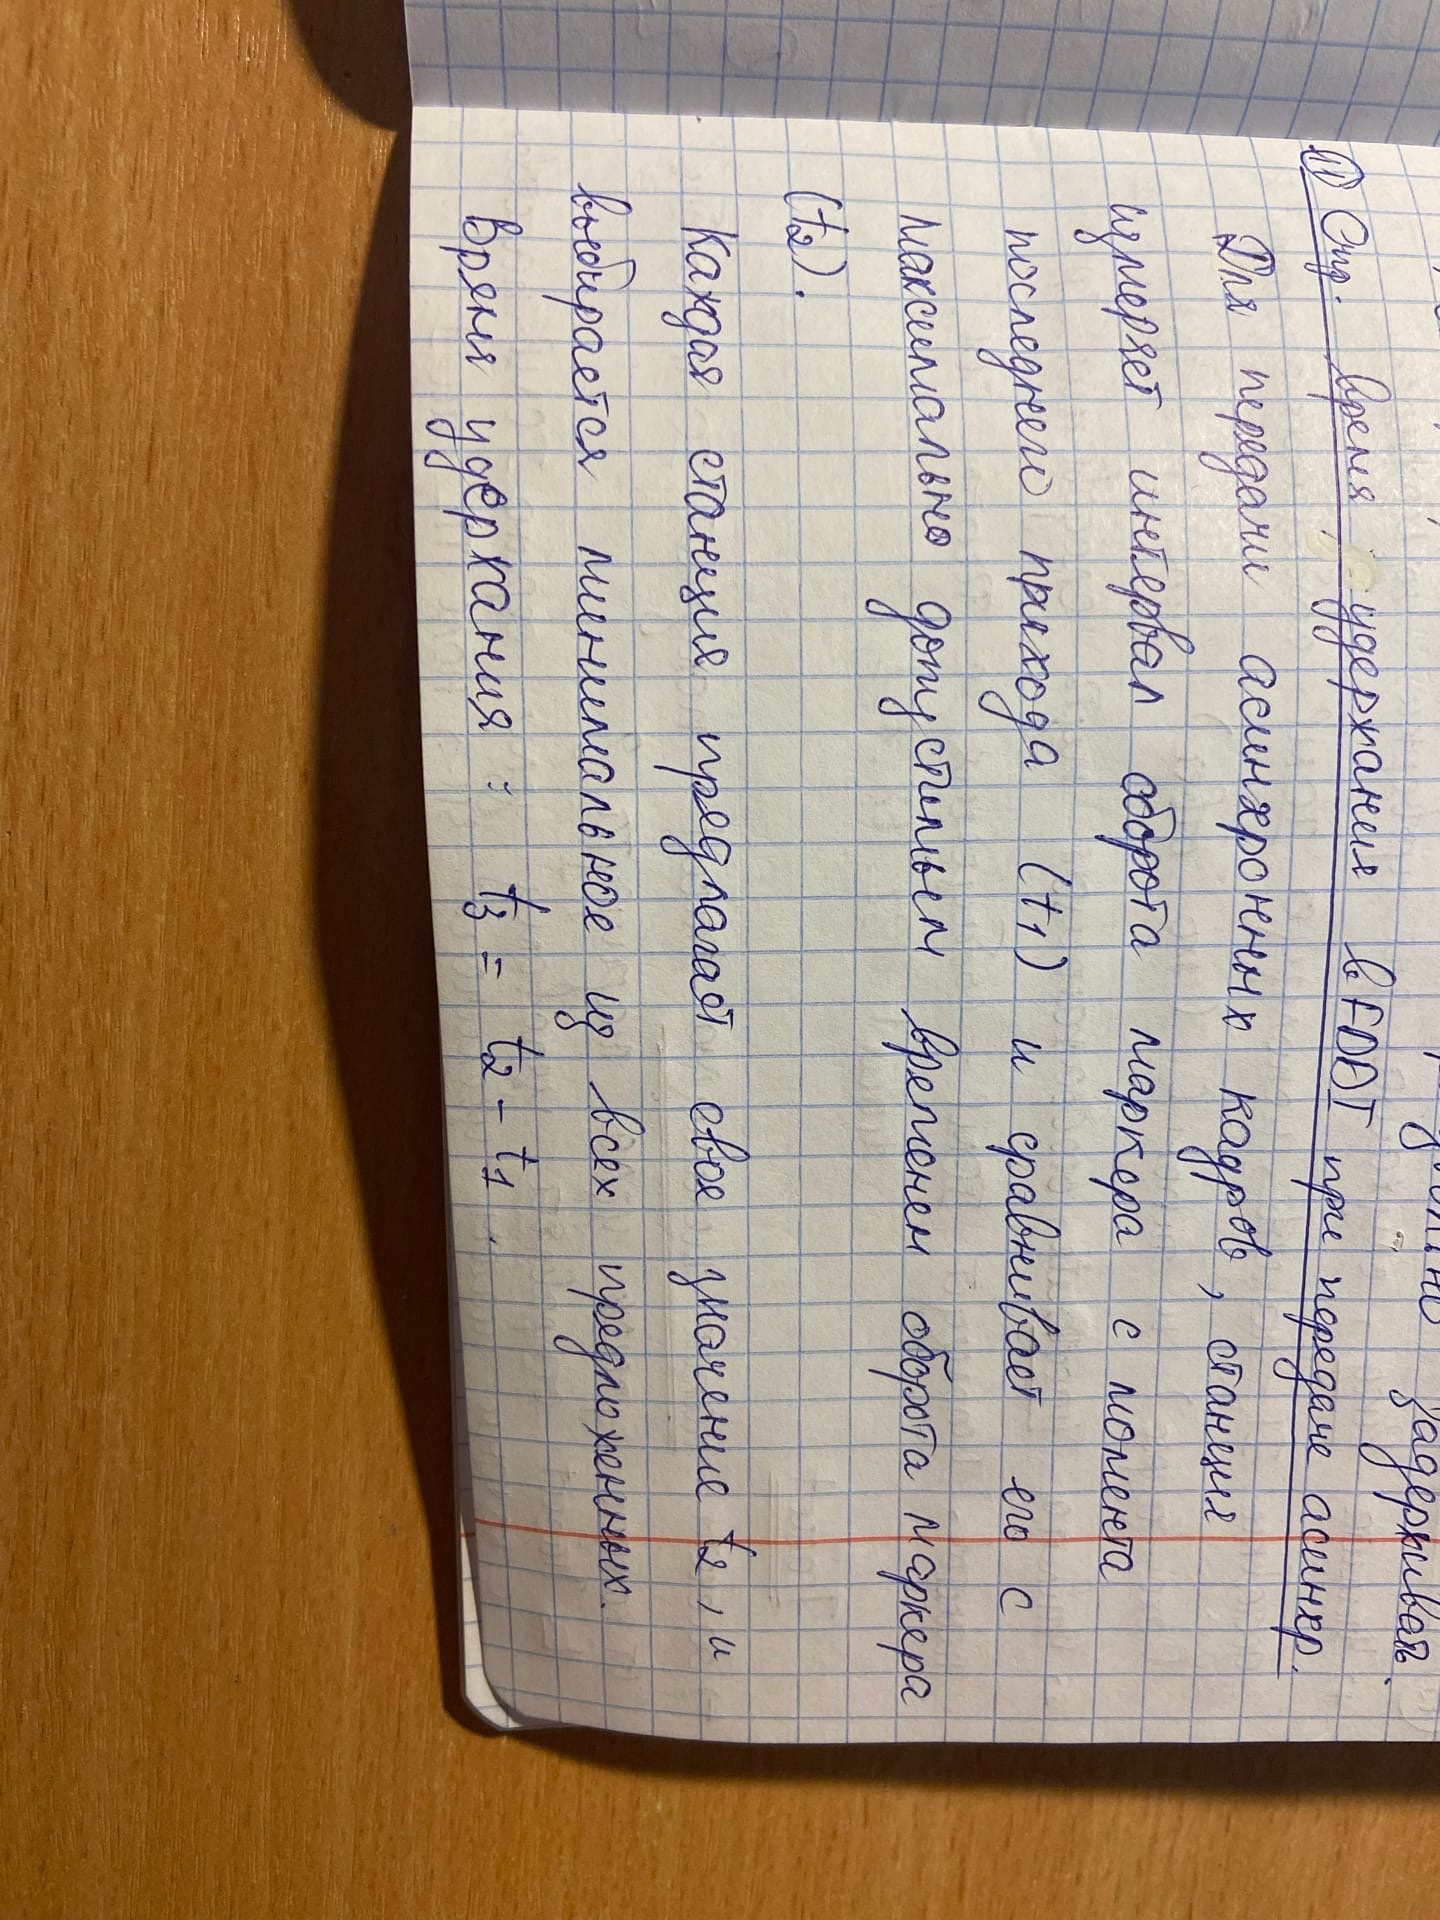 задерживать.
11 Опр. время удержания в FDDI при передаче асинхр.
Для передачи асинхронных кадров, станция
измеряет интервал оборота маркера с момента
последнего прихода (t1) и сравнивает его с
максимально допустимым временем оборота маркера
(t2).
Каждая станция предлагает своё значение t2, и
выбирается минимальное из всех предложенных.
Время удержания : t3 = t2 - t1.